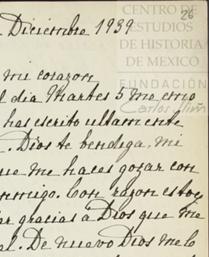 CENTRO DE
ESTUDIOS
DE HISTORIA
DE MEXICO
FUNDACIÓN
Carlos Slim
26
Diciembre 1939
mi corazon
dia Martes 5 me
has escrito ultamente
. Dios te bendiga, mi
me haces gozar con
migo. Con razon
gracias a Dios que me
al. De nuevo Dios melo